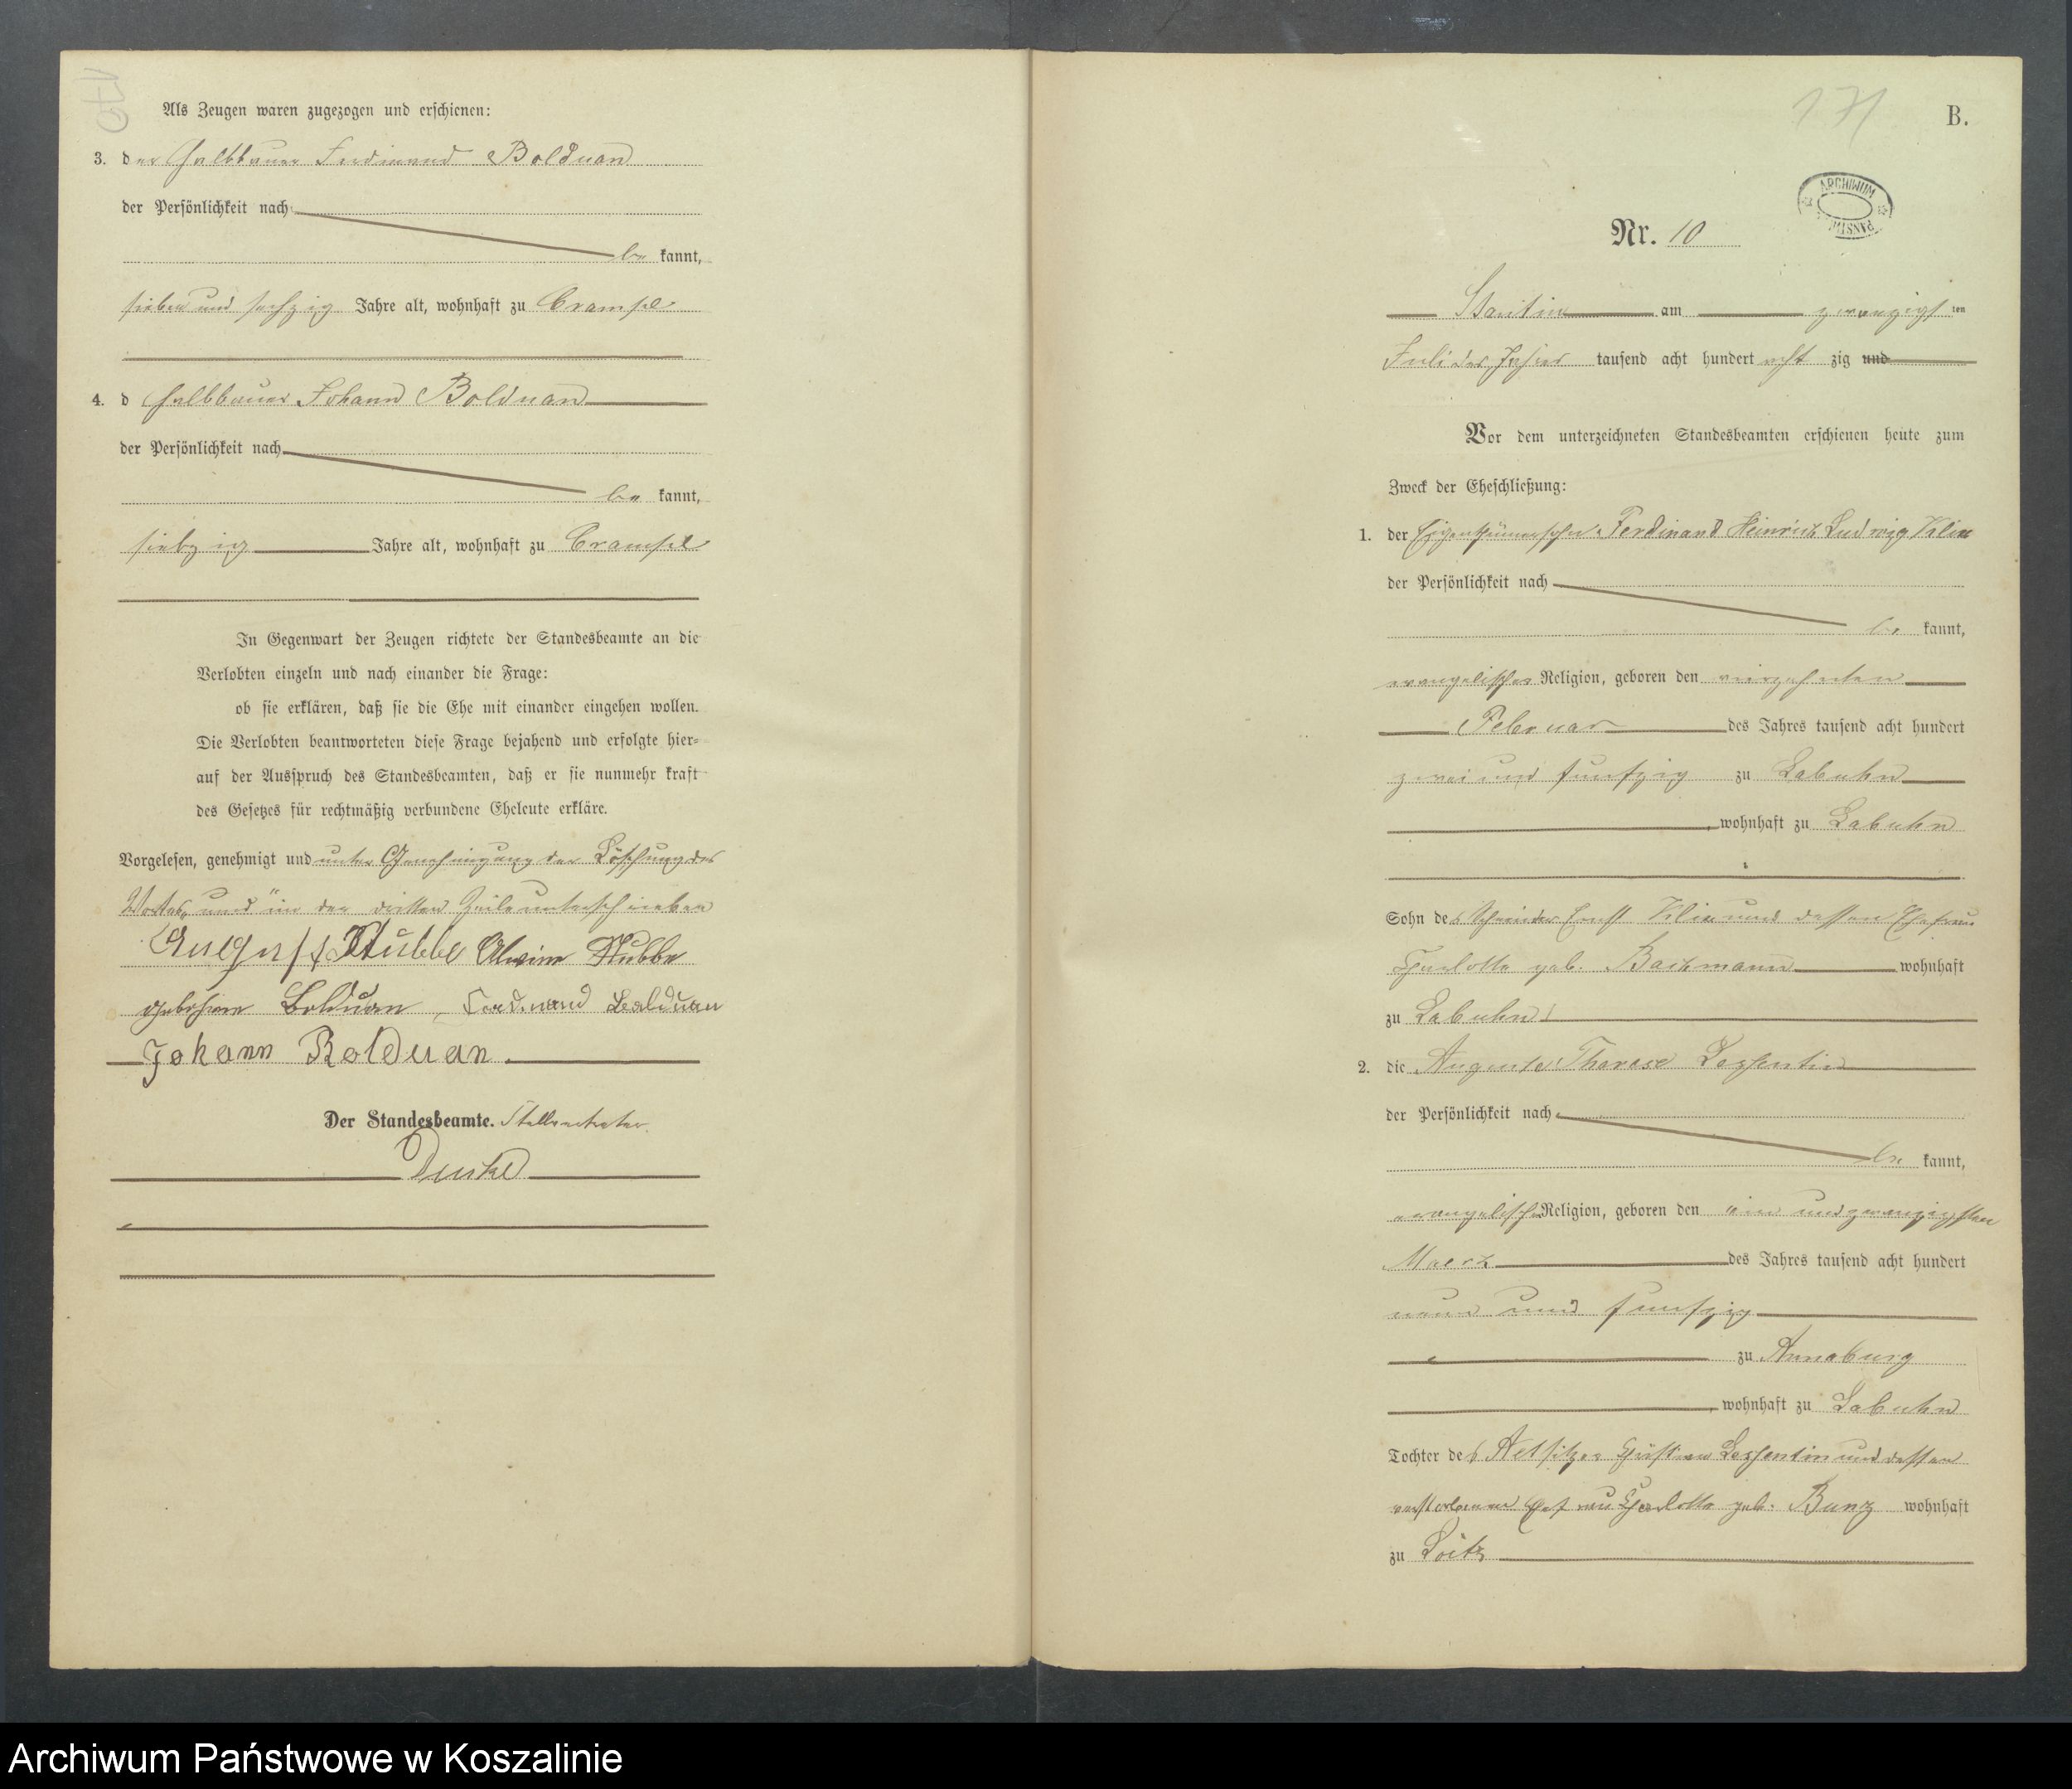 170
Als Zeugen waren zugezogen und erschienen:
3. der Halbbauer Ferdinand Bolduan
der Persönlichkeit nach
be kannt,
sieben und sechzig Jahre alt, wohnhaft zu Crampe
4. d Halbbauer Johann Bolduan
der Persönlichkeit nach
be kannt,
siebzig Jahre alt, wohnhaft zu Crampe
In Gegenwart der Zeugen richtete der Standesbeamte an die
Verlobten einzeln und nach einander die Frage:
ob sie erklären, daß sie die Ehe mit einander eingehen wollen.
Die Verlobten beantworteten diese Frage bejahend und erfolgte hier=
auf der Ausspruch des Standesbeamten, daß er sie nunmehr kraft
des Gesetzes für rechtmäßig verbundene Eheleute erkläre.
Vorgelesen, genehmigt und unter Genehmigung der Löschung des
Wortes „und" in der dritten Zeile unterschrieben
August Stubbe Alwine Stubbe
geborene Bolduan, Ferdinand Bolduan
Johann Bolduan.
Der Standesbeamte. Stellvertreter.
171
B.
ARCHIWUM
Nr. 10
am zwanzigsten
Juli des Jahres tausend acht hundert acht zig und
Vor dem unterzeichneten Standesbeamten erschienen heute zum
Zweck der Eheschließung:
1. der Eigenthümersohn Ferdinand Heinrich Ludwig Klix
der Persönlichkeit nach
be kannt,
evangelischer Religion, geboren den vierzehnten
Februar des Jahres tausend acht hundert
zwei und funfzig zu Labuhn
, wohnhaft zu Labuhn
Sohn des Ernst Klix und dessen Ehefrau
Charlotte geb. Backmann wohnhaft
zu Labuhn
2. die Auguste Therese Lessentin
der Persönlichkeit nach
be kannt,
evangelischer Religion, geboren den ein und zwanzigsten
Maerz des Jahres tausend acht hundert
neun und funfzig
zu Annaburg
, wohnhaft zu Labuhn
Tochter des Altsitzer Christian Lessentin und dessen
verstorbenen Ehefrau Charlotte geb. Bunz wohnhaft
zu Loitz
Archiwum Państwowe w Koszalinie